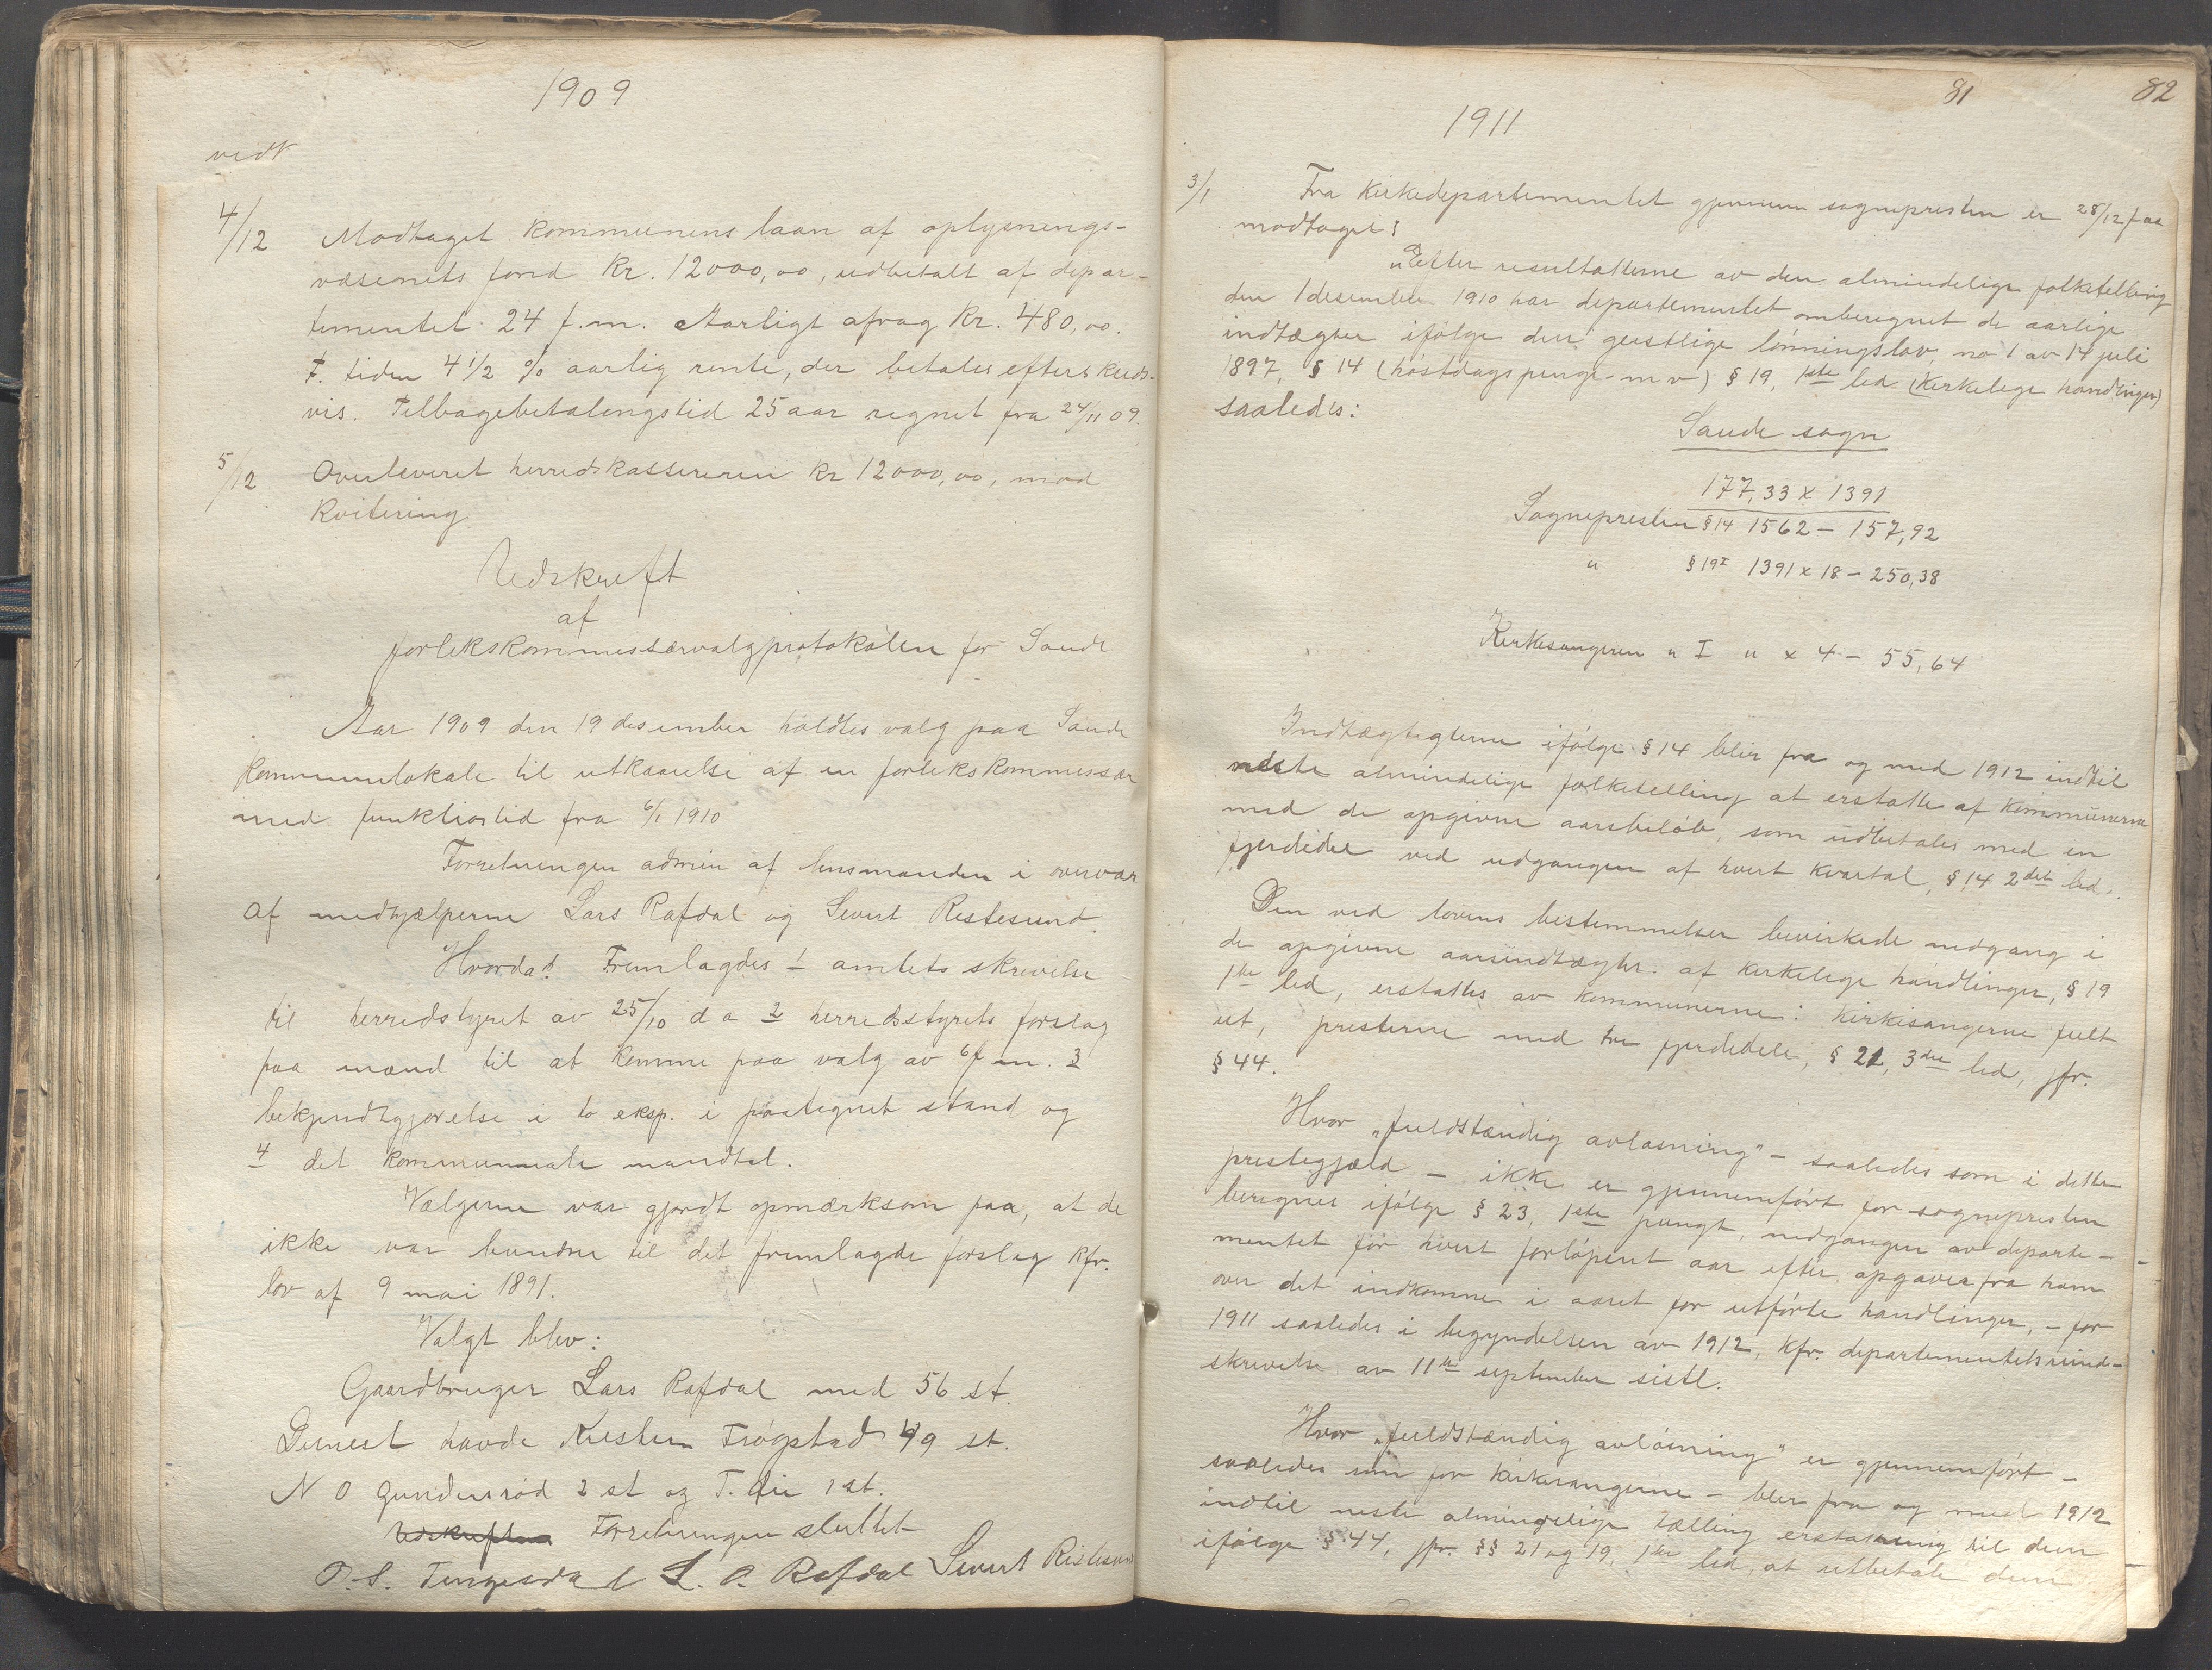 1909
vedt
4/12 Modtaget kommunens laan af oplysnings-
væsenets fond kr. 12000,00, udbetalt af depar-
tementet 24 f.m. Aarligt afrag kr. 480,00.
F. tiden 4 1/2 % aarlig rente, der betales efterskuds-
vis. Tilbagebetalingstid 25 aar regnet fra 24/11 09.
5/12 Overleveret herredskassereren kr 12000,00, mod
kvitering
Udskrift
af
forlikskommissærvalgprotokolen for Saude
Aar 1909 den 19 desember holdtes valg paa Saude
kommunelokale til utkaarelse af en forlikskommissær
med funktionstid fra 6/1 1910
Forretningen admin af lensmanden i overvær
af medhjælperne Lars Rafdal og Sivert Ristesund.
Hvorda! Fremlagdes 1 amtets skrivelse
til herredstyret av 25/10 d a 2 herredsstyrets forslag
paa mænd til at komme paa valg av 6 f m. 3
bekjendtgjørelse i to eksp. i paategnet stand og
4 det kommunale mandtal.
Vælgerne var gjordt opmærksom paa, at de
ikke var bundne til det fremlagde forslag kfr.
lov af 9 mai 1891.
Valgt blev:
Gaardbruger Lars Rafdal med 56 st.
Dernest havde Kristen Frøgstad 49 st.
N O Gundersrød 2 st og T. Lie 1 st.
Udskriften Forretningen sluttet
O. S. Tengesdal L. O. Rafdal Sivert Ristesund
81 82
1911
3/1 Fra Kirkedepartementet gjennem sognepresten er 28/12 f aa
modtaget:
"Efter resultatterne av den almindelige folketelling
den 1 desember 1910 har departementet omberegnet de aarlige
indtægter ifølge den geistlige lønningslov, no 1 av 14 juli
1897, § 14 (høstdagspenge m v) § 19, 1ste led (kirkelige handlinger)
saaledes:
Saude sogn
177,33 x 1391
Sognepresten § 14 1562 – 157,92
" § 19 I 1391 x 18 – 250,38
Kirkesangeren " I " x 4 – 55,64
Indtægtegterne ifølge § 14 blir fra og med 1912 indtil
neste almindelige folketelling at erstatte af kommunerne
med de opgivne aarsbeløb, som udbetales med en
fjerdedel ved udgangen af hvert kvartal, § 14 2det led.
Den ved lovens bestemmelser bevirkede nedgang i
de opgivne aarsindtægter af kirkelige handlinger, § 19
1ste led, erstattes av kommunerne: kirkesangerne fuldt
ut, presterne med tre fjerdedele, § 21, 3die led, jfr.
§ 44.
Hvor „fuldstændig avløsning" – saaledes som i dette
prestegjæld – ikke er gjennemført for sognepresten
beregnes ifølge § 23, 1ste pungt, nedgangen av departe-
mentet for hvert forløpent aar efter opgaver fra ham
over det indkomne i aaret for utførte handlinger, – for
1911 saaledes i begyndelsen av 1912, kfr. departementets rund-
skrivelse av 11te september sistl.
Hvor „fuldstændig avløsning" er gjennemført –
saaledes som for kirkesangerne – blir fra og med 1912
indtil neste almindelige tælling erstatning til dem
ifølge § 44, jfr. §§ 21 og 19, 1ste led, at utbetale dem